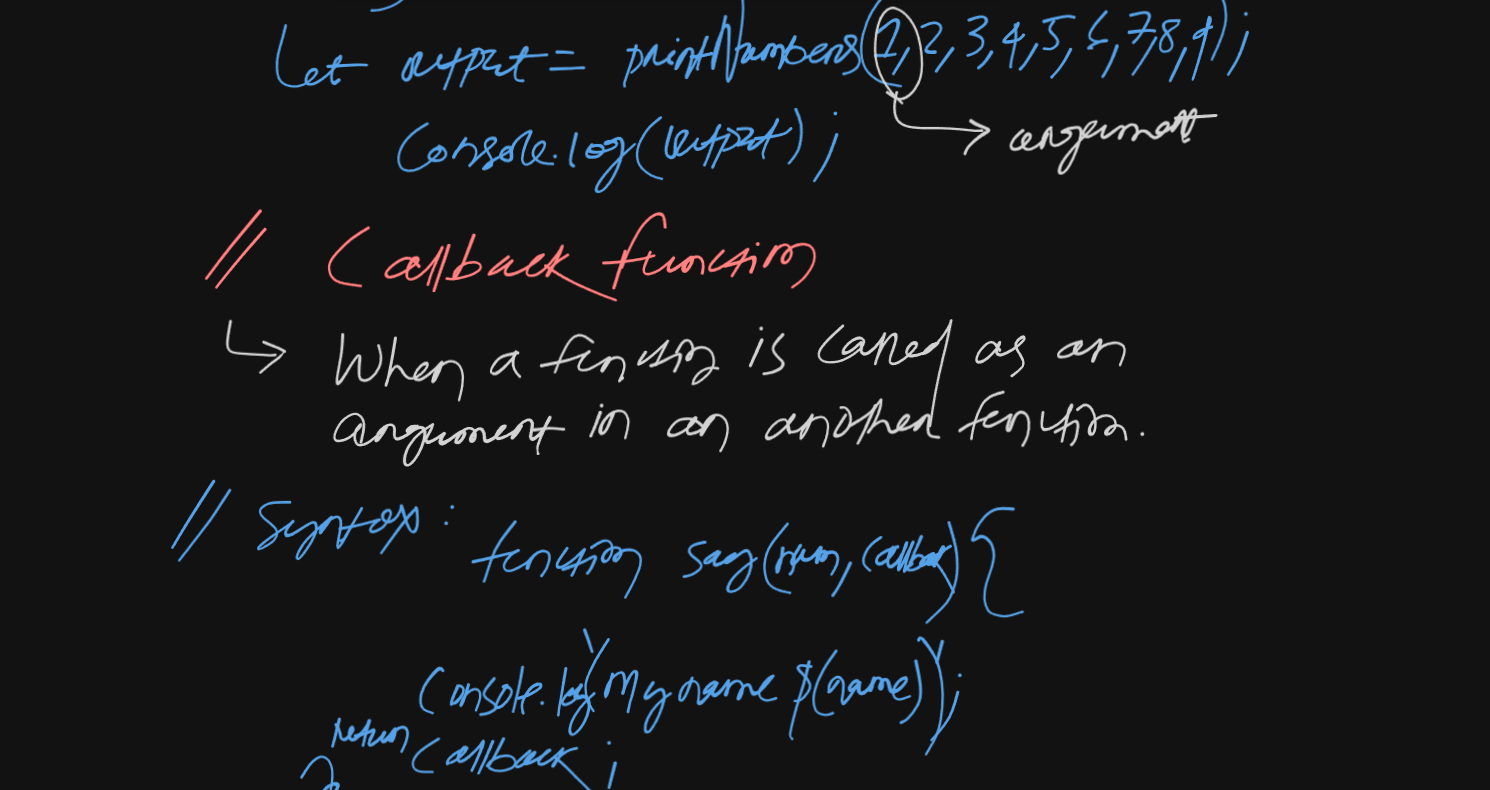 Let output = printNumbers(1,2,3,4,5,6,7,8,9);
Console.log(output);
→ argument
// Callback function
↳ When a function is called as an
argument in an another function.
// Syntax: function say(num, callback) {
Console.log(`My name $(name)`);
return Callback;
}